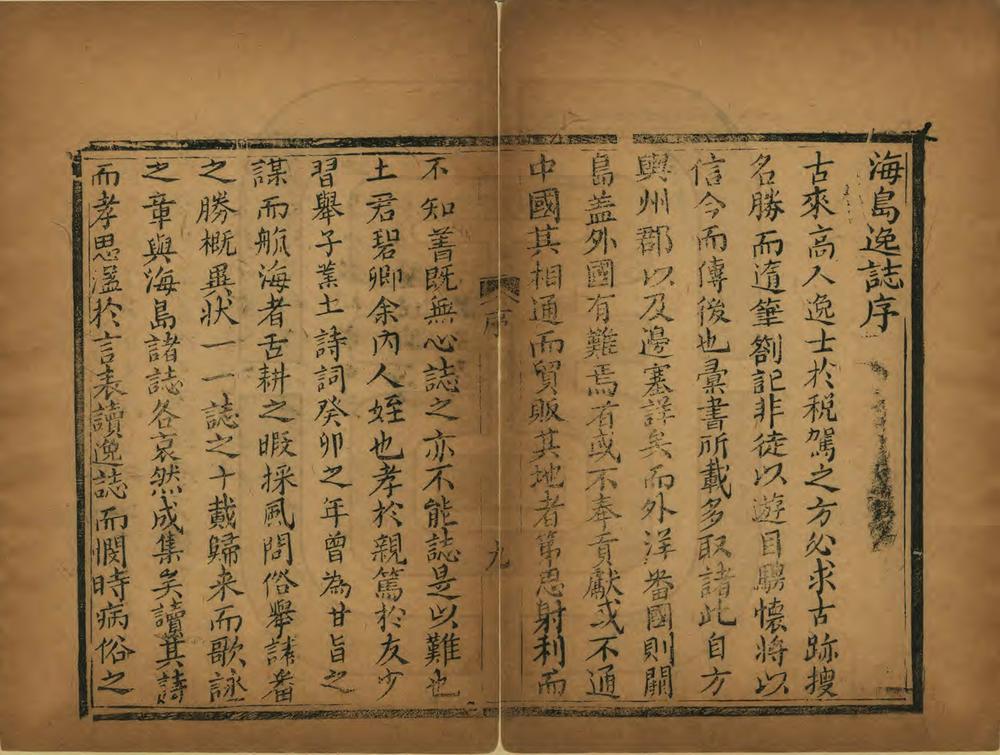 海島逸誌序
古來高人逸士於稅駕之方必求古跡搜
名勝而隨筆劄記非徒以遊目騁懷將以
信今而傳後也彙書所載多取諸此自方
輿州郡以及邊塞詳矣而外洋番國則闕
島蓋外國有難焉者或不奉貢獻或不通
中國其相通而貿販其地者第思射利而
序
九
不知著既無心誌之亦不能誌是以難也
王君碧卿余內人姪也孝於親篤於友少
習舉子業土詩詞癸卯之年曾為甘旨之
謀而航海者舌耕之暇採風問俗舉諸番
之勝概異狀一一誌之十載歸来而歌詠
之章與海島諸誌各裒然成集矣讀其詩
而孝思溢於言表讀逸誌而憫時病俗之